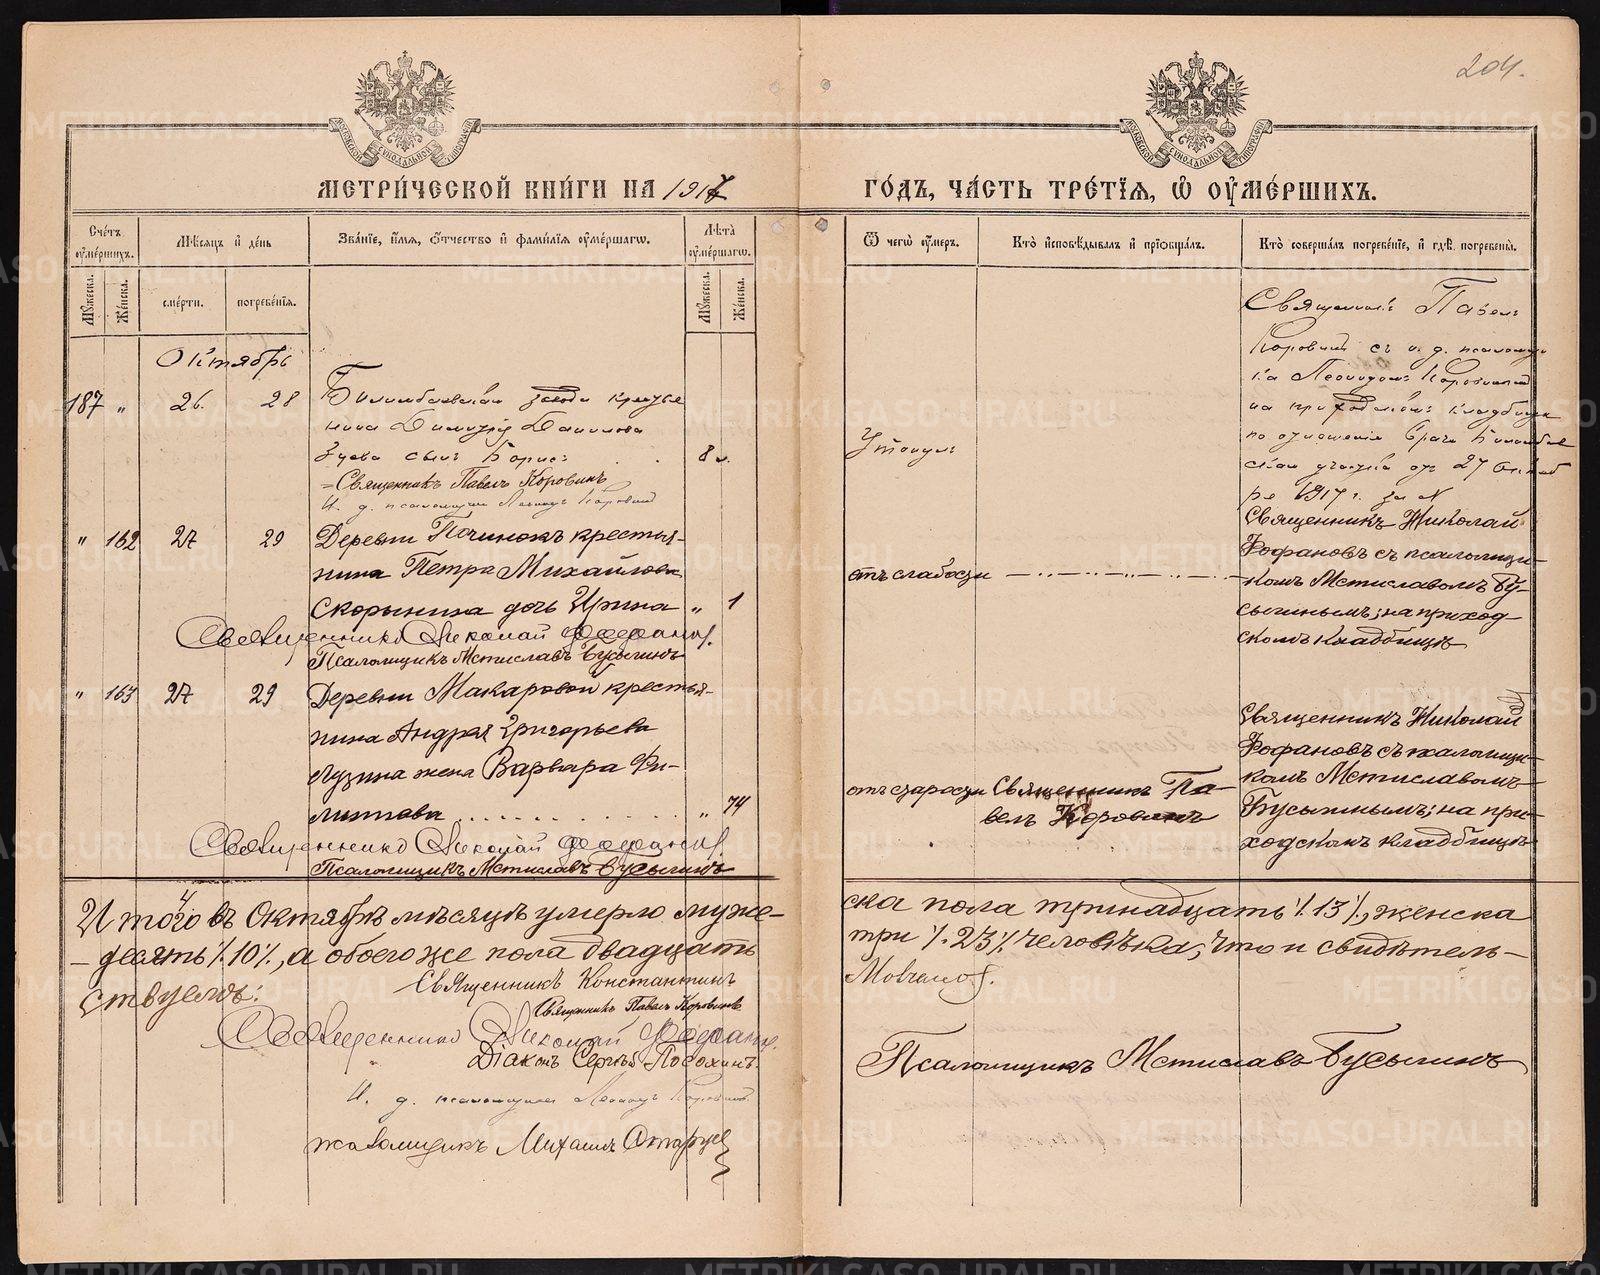 204.
МЕТРИ́ЧЕСКОЙ КНИ́ГИ НА 1917
ГО́ДЪ, ЧА́СТЬ ТРЕ́ТІЯ, Ѡ ОУ҆МЕ́РШИХЪ.
Сче́тъ оу҆ме́ршихъ.
Мѣ́сяцъ и҆ де́нь
Зва́ніе, и҆́мя, ѻ҆́тчество и҆ фами́лія оу҆ме́ршагѡ.
Лѣ́та оу҆ме́ршагѡ.
Ѿ чегѡ̀ оу҆́меръ.
Кто̀ и҆сповѣ́дывалъ и҆ прїѡбща́лъ.
Кто̀ соверша́лъ погребе́ніе, и҆ гдѣ̀ погребены̀.
Му́жеска.
Же́нска.
сме́рти.
погребе́нія.
Му́жеска.
Же́нска.
Октябрь
187 " 26. 28
Билимбаевскаго завода крестья
нина Димитрія Данилова
Зуева сынъ Борисъ . . 8 л.
Священникъ Павелъ Коровинъ
И. д. псаломщика Леонидъ Коровинъ
Утонулъ
Священникъ Павелъ
Коровинъ съ и. д. псаломщи
ка Леонидомъ Коровинымъ
на приходскомъ кладбищѣ
по отношенію врача Билимбаев
скаго участка отъ 27 октяб
ря 1917 г. за №
" 162 27 29
Деревни Починокъ крестья-
нина Петра Михайлова
Скорынина дочь Ирина " 1
Священникъ Николай Фофановъ.
Псаломщикъ Мстиславъ Бусыгинъ
отъ слабости
Священникъ Николай
Фофановъ съ псаломщи-
комъ Мстиславомъ Бу-
сыгинымъ; на приход-
скомъ кладбищѣ
" 163 27 29
Деревни Макаровой крестья-
нина Андрея Григорьева
Лузина жена Варвара Фи-
липпова " 74
Священникъ Николай Фофановъ.
Псаломщикъ Мстиславъ Бусыгинъ
отъ старости
Священникъ Па-
велъ Коровинъ
Священникъ Николай
Фофановъ съ псаломщи-
комъ Мстиславомъ
Бусыгинымъ; на при-
ходскомъ кладбищѣ
Итого въ Октябрѣ мѣсяцѣ умерло муже-
ска пола тринадцать %13%, женска
– десять %10%, а обоего же пола двадцать
три %23% человѣка, что и свидѣтель-
ствуемъ:
Священникъ Константинъ
Мовчановъ.
Священникъ Павелъ Коровинъ
Священникъ Николай Фофановъ.
Діаконъ Сергѣй Посохинъ.
И. д. псаломщика Леонидъ Коровинъ
Псаломщикъ Мстиславъ Бусыгинъ
псаломщикъ Михаилъ
METRIKI.GASO-URAL.RU